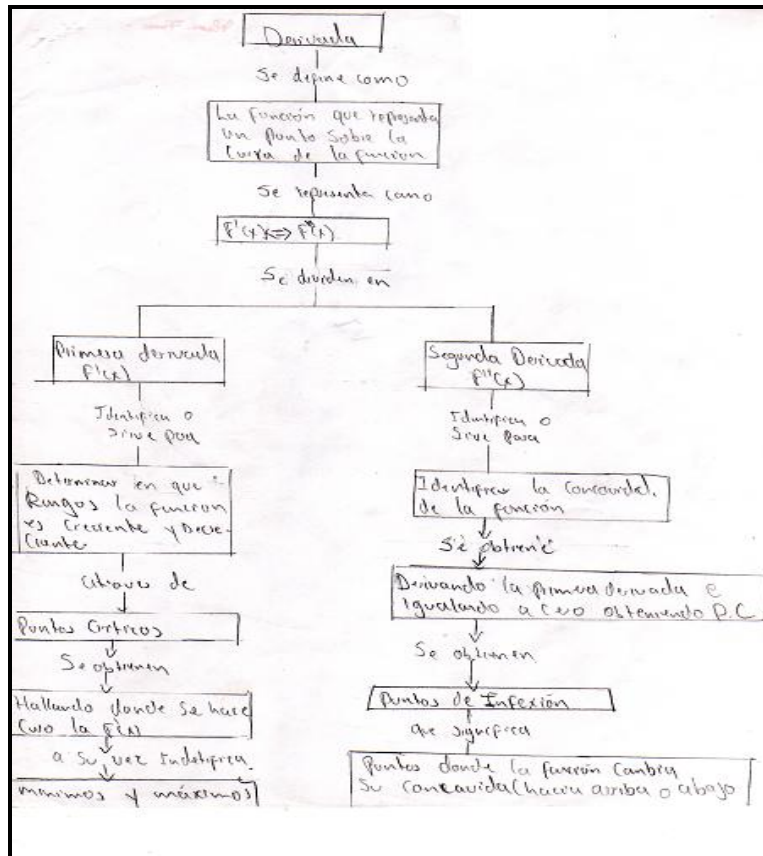 Derivada
Se define como
La función que representa
un punto sobre la
curva de la función
Se representa como
F'(x) <=> F''(x)
Se dividen en
Primera derivada
F'(x)
Identifica o
Sirve para
Determinar en que
Rangos la función
es creciente y Decre-
ciente
atraves de
Puntos Criticos
Se obtienen
Hallando donde Se hace
cero la F'(x)
a su vez Indetifica
minimos y máximos
Segunda Derivada
F''(x)
Identifica o
Sirve para
Identificar la concavidad
de la función
Se obtiene
Derivando la primera derivada e
igualando a cero obteniendo P.C
Se obtienen
Puntos de Infexión
que significa
Puntos donde la función Cambia
Su concavida (hacia arriba o abajo